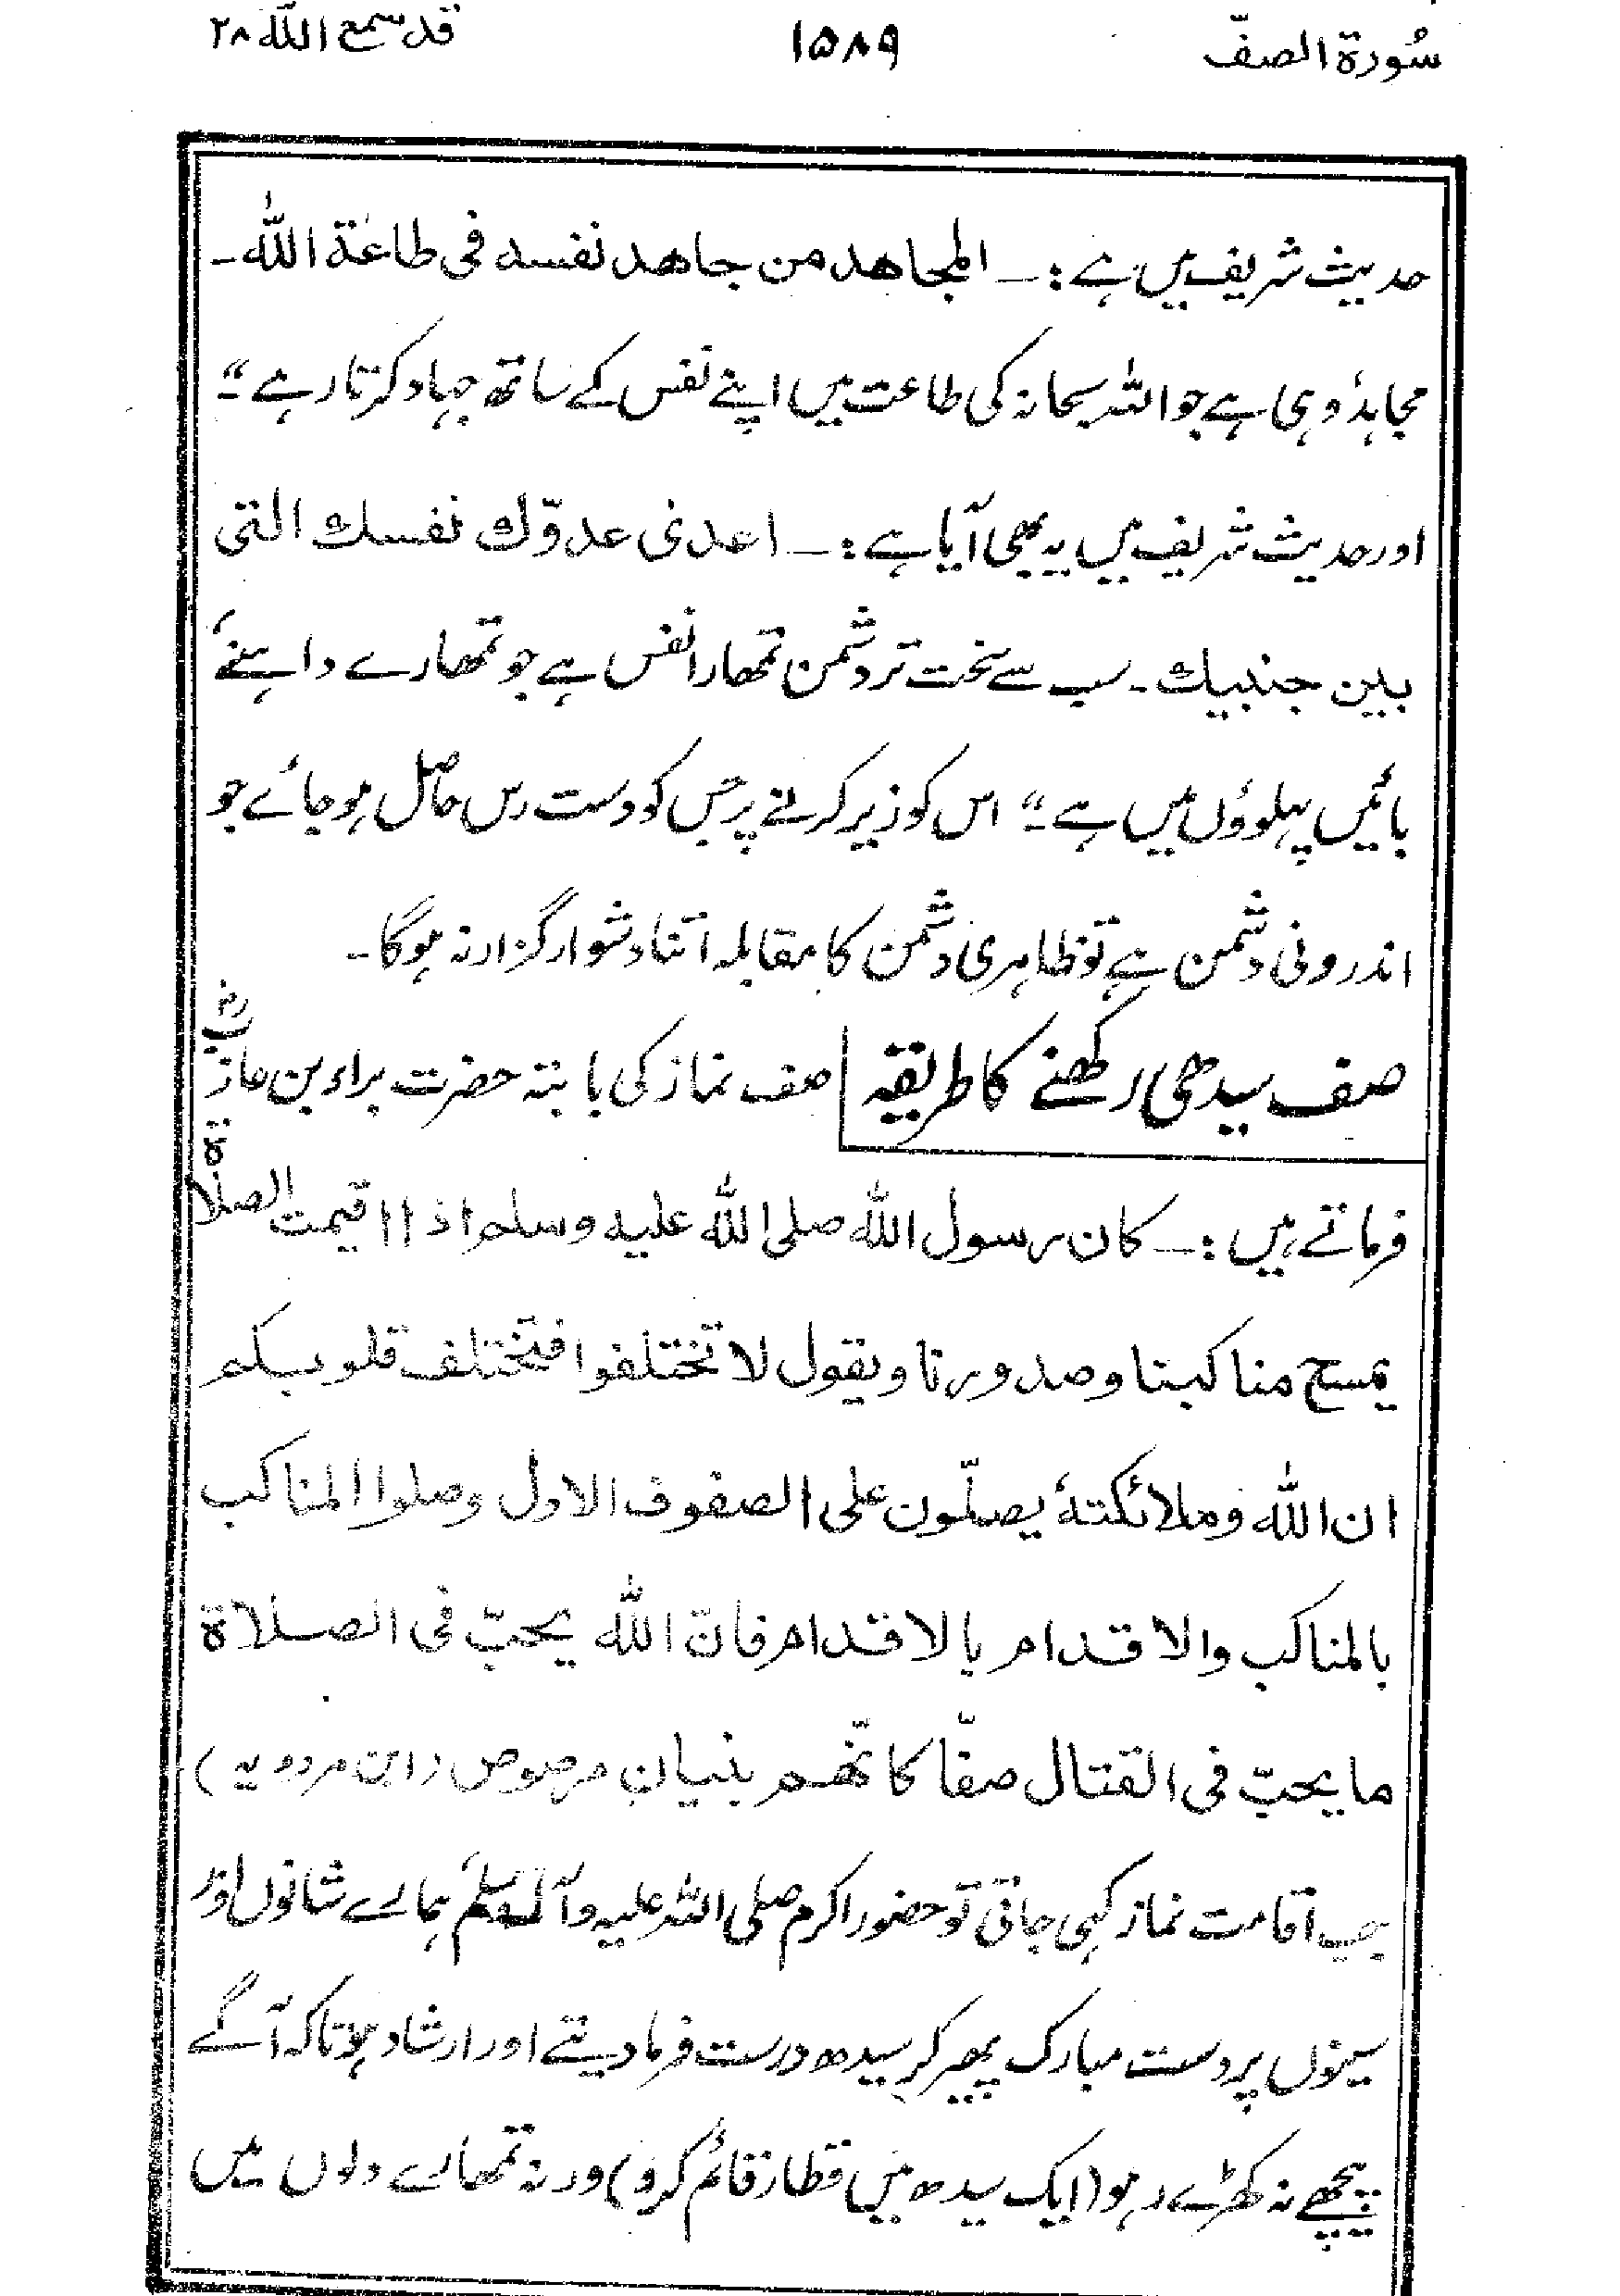 سُورة الصفّ ۱۵۸۹ قد سمع اللّٰه ۲۸
حدیث شریف میں ہے :۔ المجاهد من جاهد نفسه فی طاعة اللّٰه ۔
مجاہد وہی ہے جو اللہ سبحانہ کی طاعت میں اپنے نفس کے ساتھ جہاد کرتا رہے ۔“
اور حدیث شریف میں یہ بھی آیا ہے :۔ اعدٰی عدوّك نفسك التی
بین جنبیك ۔ سب سے سخت تر دشمن تمھارا نفس ہے جو تمھارے داہنے
بائیں پہلوؤں میں ہے ۔“ اس کو زیر کرنے پر جس کو دست رس حاصل ہو جائے جو
اندرونی دشمن ہے تو ظاہری دشمن کا مقابلہ اتنا دشوار گزار نہ ہوگا ۔
صف سیدھی رکھنے کا طریقہ صف نماز کی بابتہ حضرت براء بن عازبؓ
فرماتے ہیں :۔ کان رسول اللّٰه صلی اللّٰه علیه وسلم اذا اقیمت الصلاة
یمسح مناکبنا وصدورنا ویقول لا تختلفوا فتختلف قلوبکم
ان اللّٰه وملائکتهٗ یصلّون علی الصفوف الاول وصلوا المناکب
بالمناکب والاقدام بالاقدام فانّ اللّٰه یحبّ فی الصلاة
ما یحبّ فی القتال صفّا کانّهم بنیان مرصوص (ابن مردویہ)
جب اقامت نماز کہی جاتی تو حضور اکرم صلی اللہ علیہ وآلہ وسلم ہمارے شانوں اور
سینوں پر دست مبارک پھیر کر سیدھ درست فرما دیتے اور ارشاد ہوتا کہ آگے
پیچھے نہ کھڑے رہو (ایک سیدھ میں قطار قائم کرو) ورنہ تمھارے دلوں میں